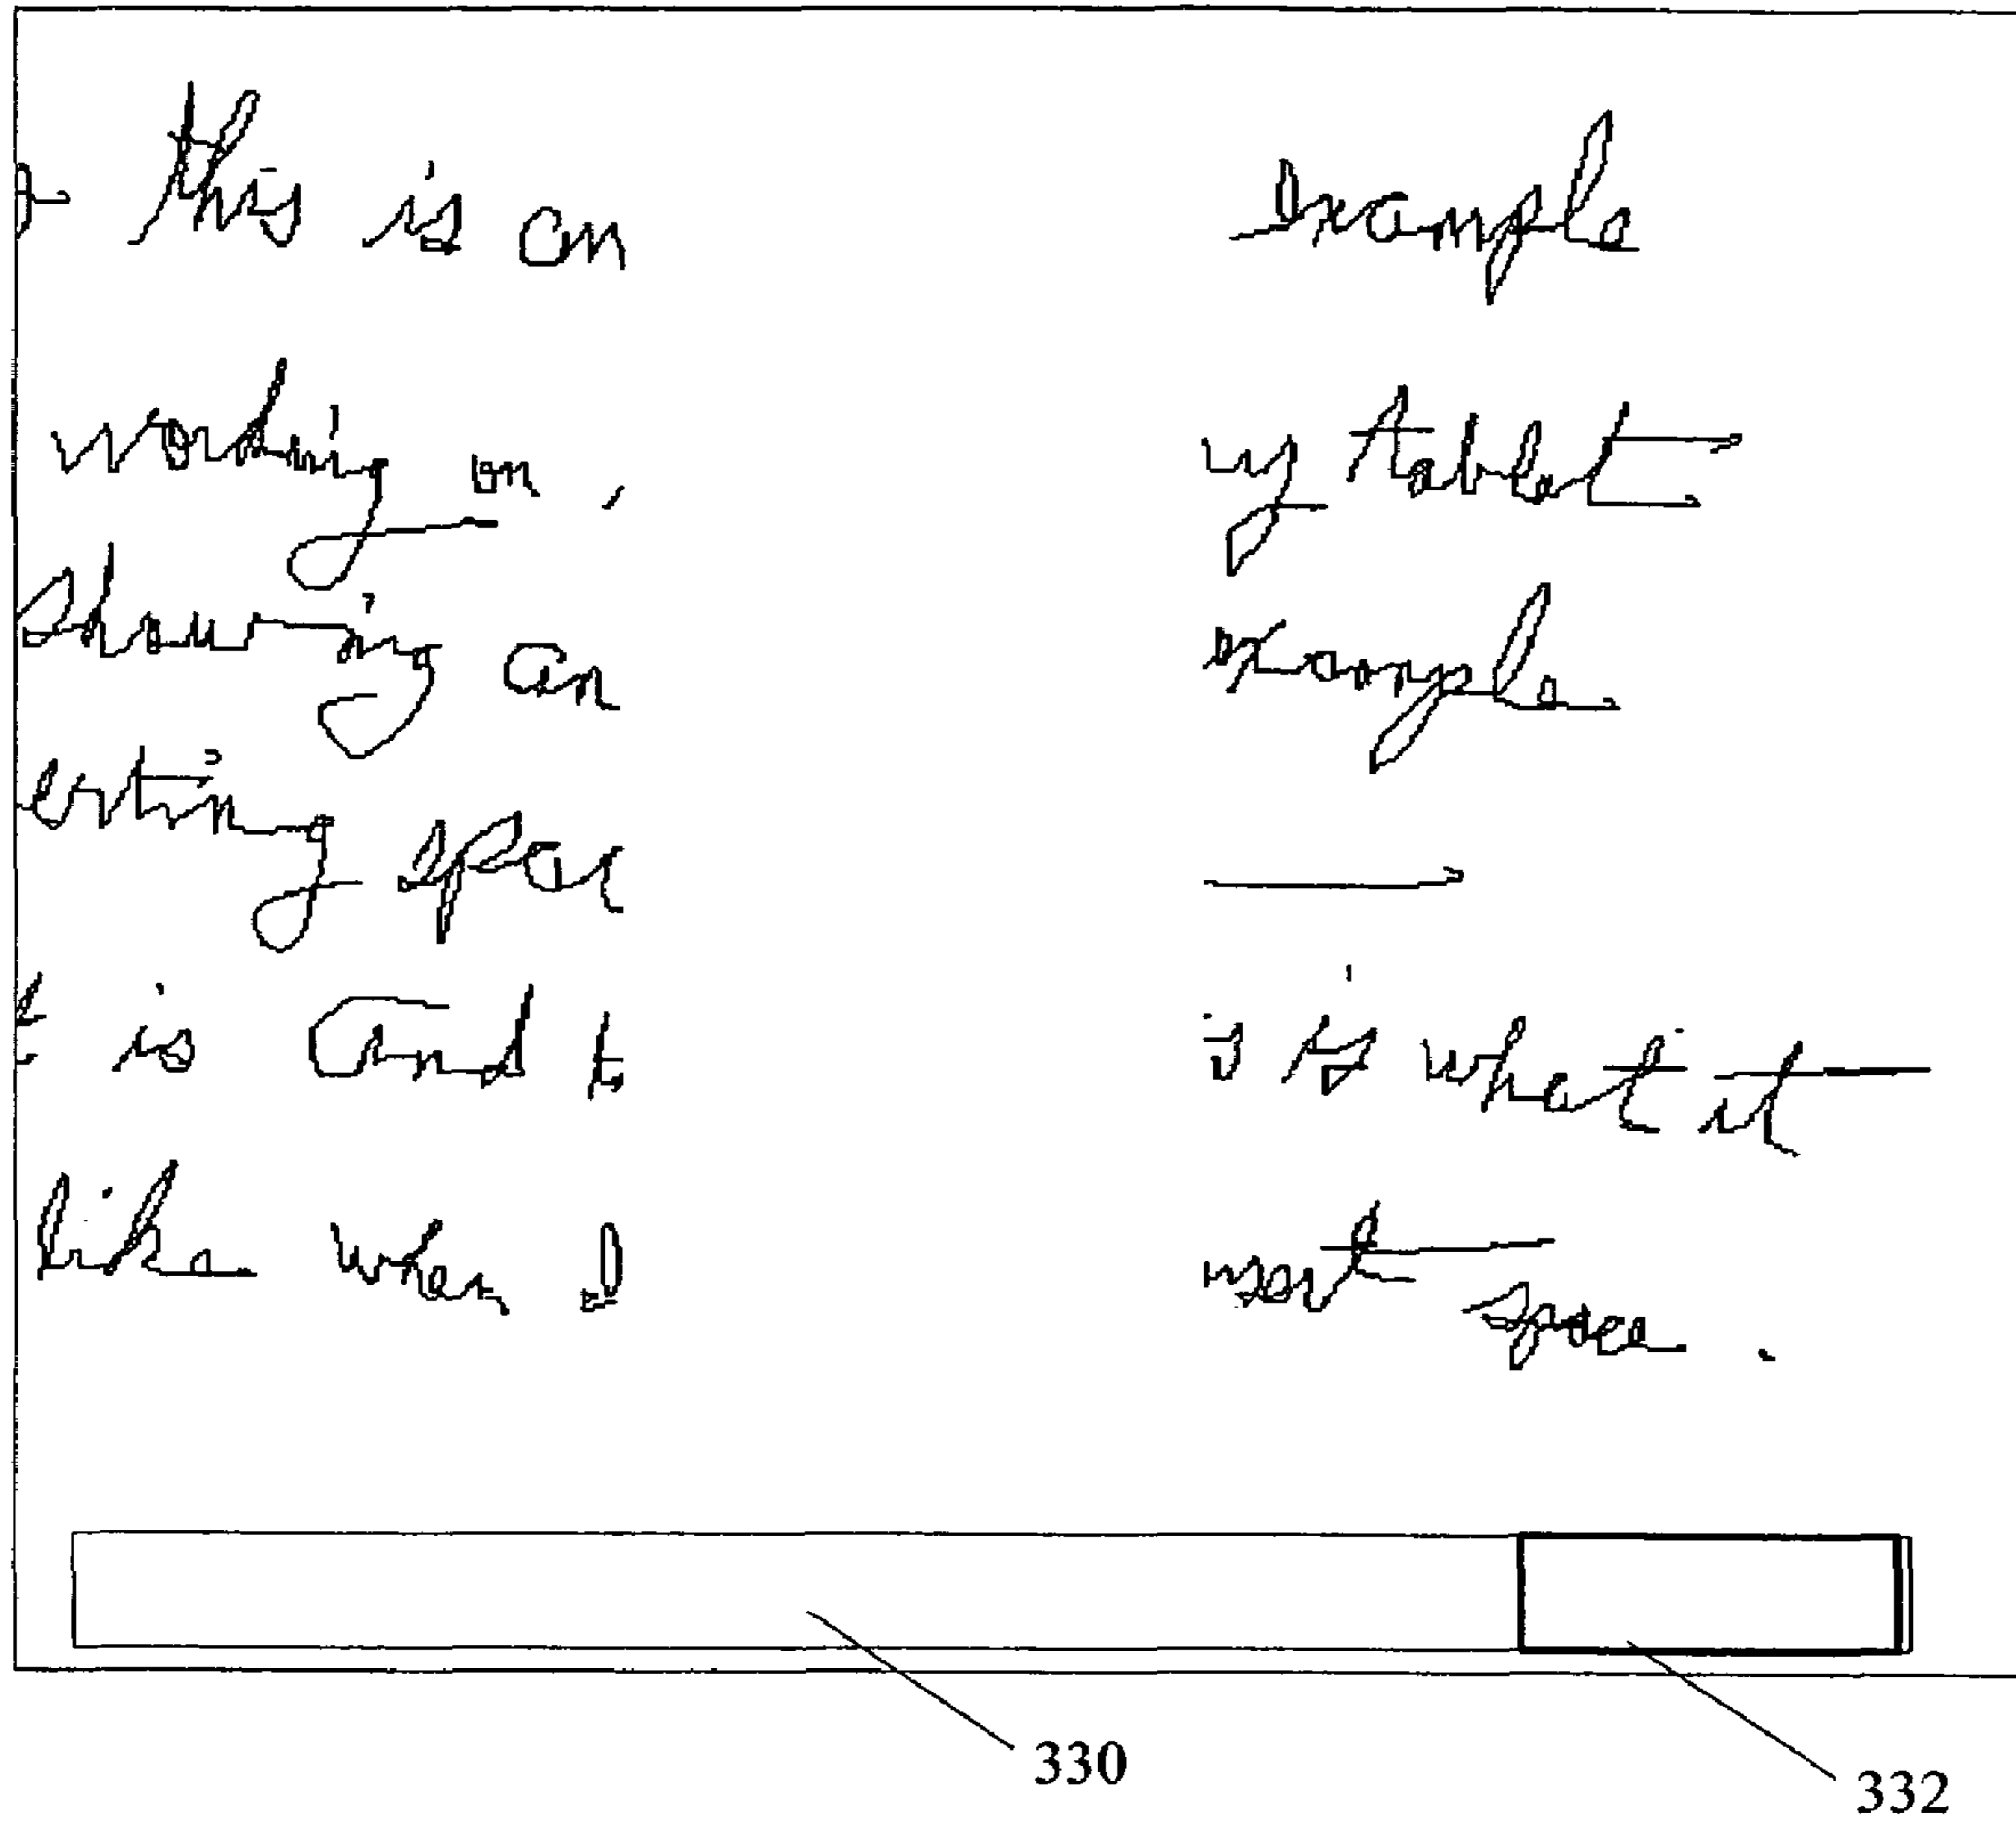 this is an example
working on my tablet
showing an example
erting spac
is and this is what it
like when I insert space .
330
332